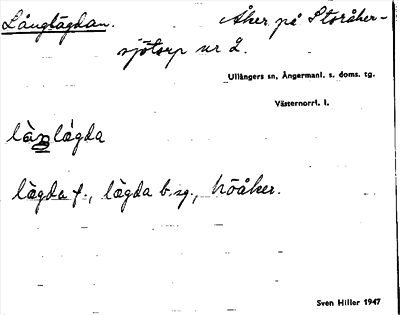 Långlägdan. Åker på Storåker-
sjötorp nr 2.
Ullångers sn, Ångermanl. s. doms. tg.
Västernorrl. l.
làŋlǽgda
lǽgda f., lǽgda b.sg., höåker.
Sven Hiller 1947